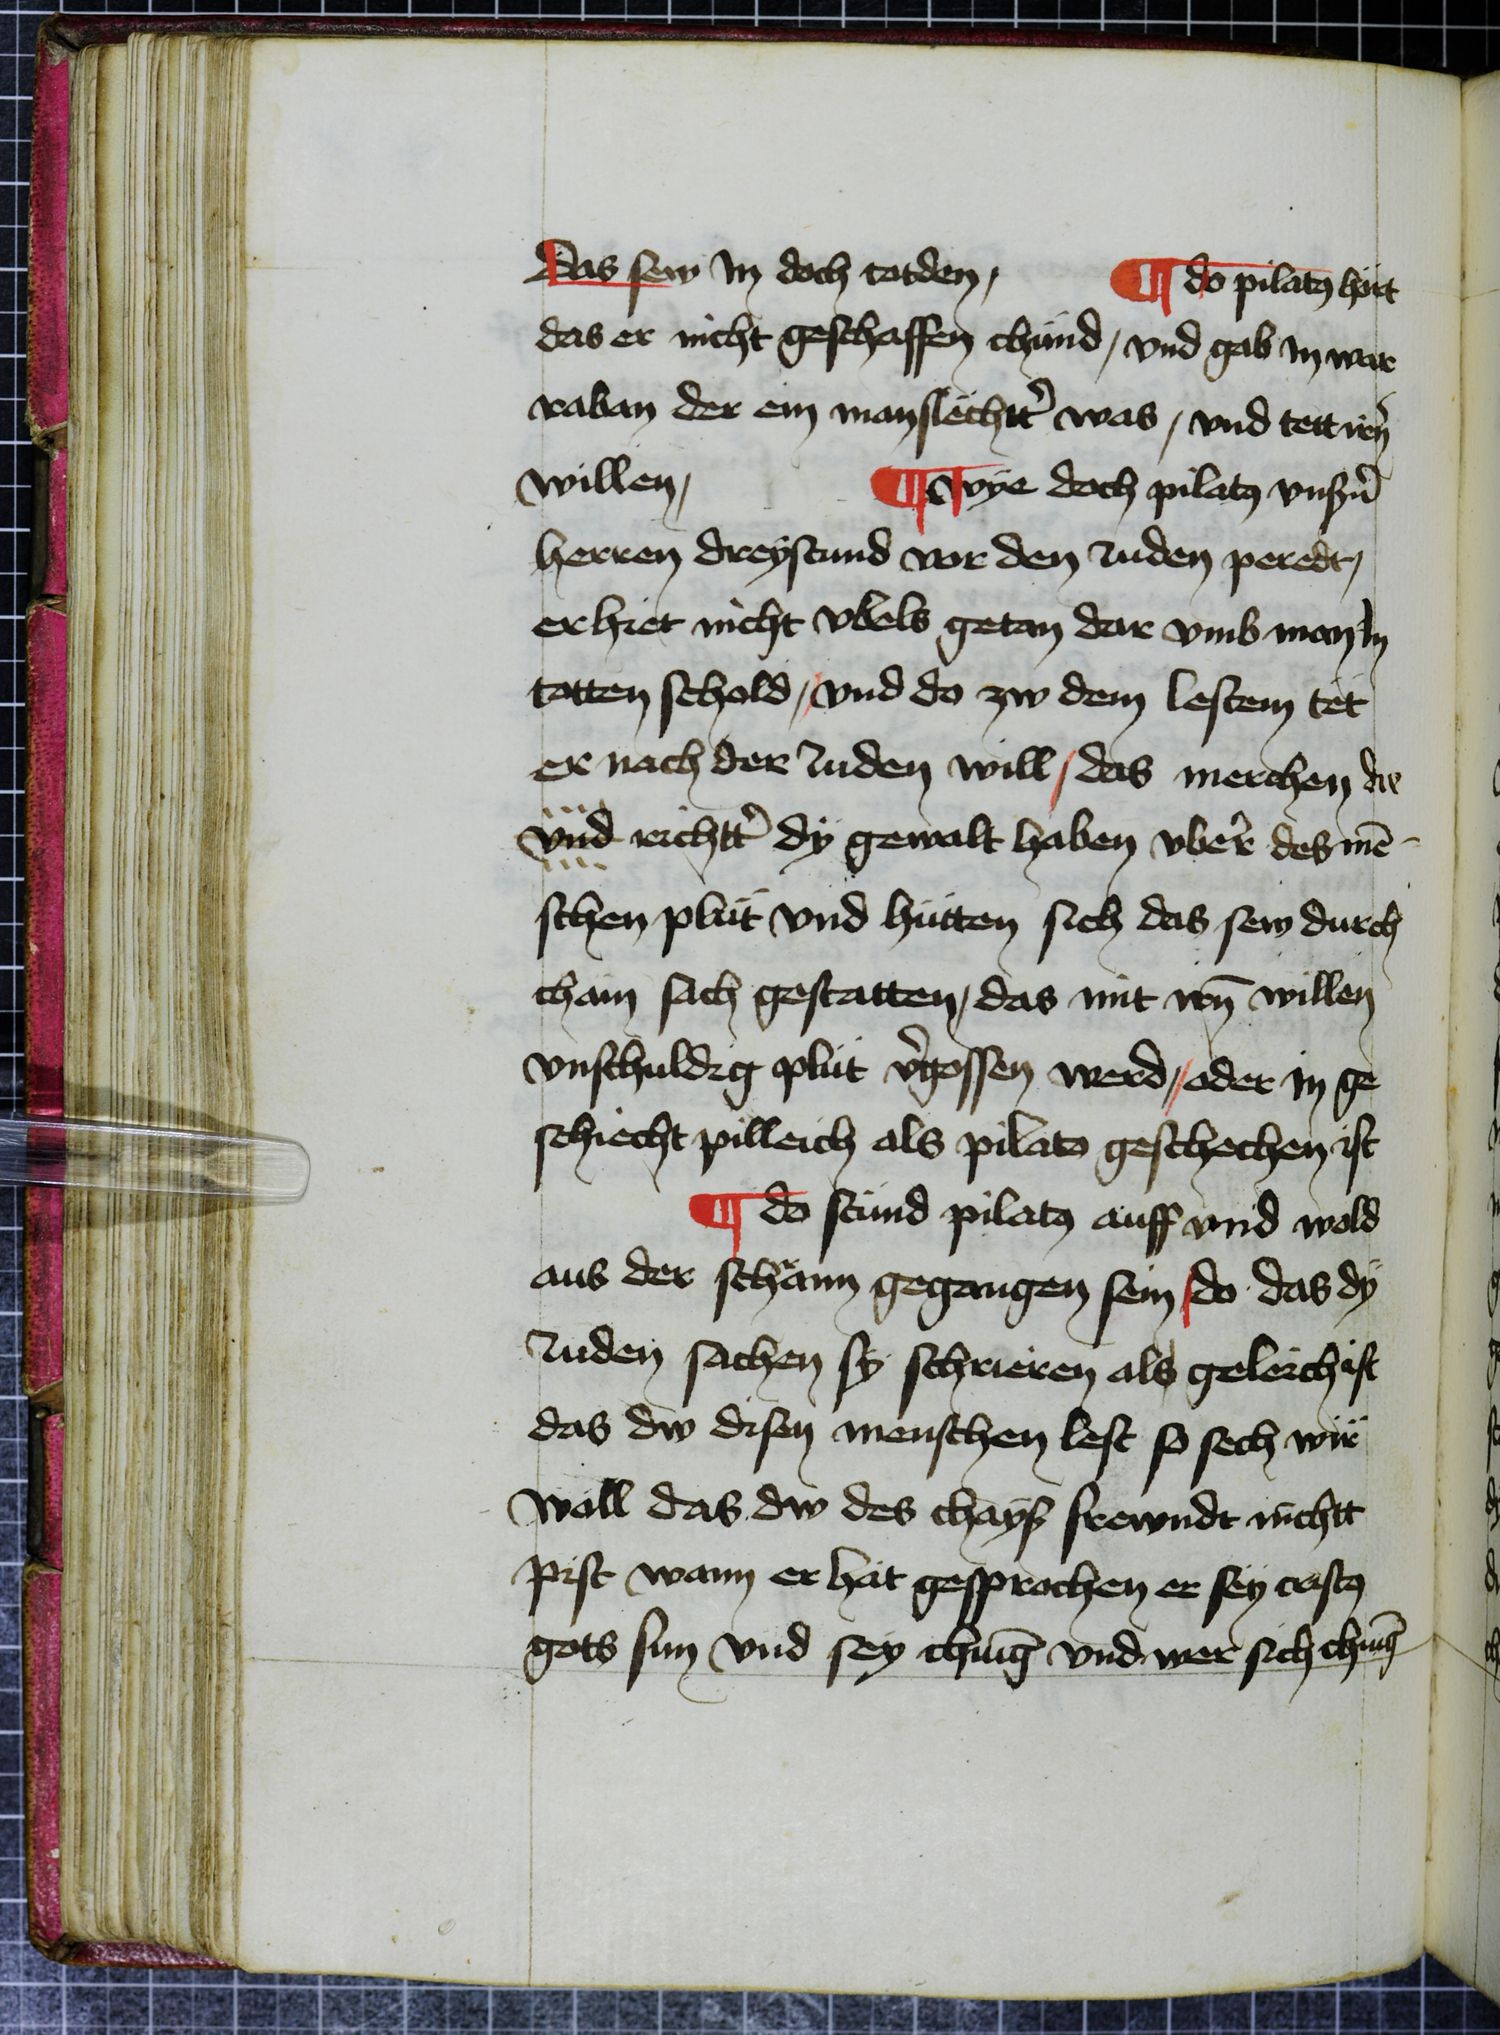 Das sew In doch totden / ¶ do pilatꝰ hört
das er nicht geschaffen chünd / vnd gab In war
raban der ein manslëchtt̾ was / vnd tett irn̄
willen / ¶ wye doch pilatꝰ vnßn̄
herren dreystund vor den Juden peredt /
er hiet nicht vbels getan dar vmb man In
totten schold / vnd do zw dem lestem tët
er nach der Juden will / das merchen die
vnd richtt̾ dÿ gewalt haben vber̾ des mē-
schen plüt vnd hütten sich das sew durch
chain sach gestatten / das mit irn̄ willen
vnschuldig plüt v̾gossen werd // oder in ge
schiecht pilleich als pilato geschechen ist
¶ do stünd pilatꝰ auff vnd wold
aus der schränn gegangen sein / do das dÿ
Juden sachen sy schrieren als geleich ist
das dw disen menschen lest so sech wir
woll das dw des chayß frewndt nichtt
pist wann er hat gesprochen er sey cristꝰ
gots sun vnd sey chuniḡ vnd wer sich chuniḡ